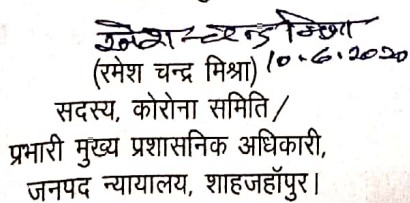 रमेश चन्द्र मिश्रा
10.6.2020
(रमेश चन्द्र मिश्रा)
सदस्य, कोरोना समिति/
प्रभारी मुख्य प्रशासनिक अधिकारी,
जनपद न्यायालय, शाहजहॉपुर।